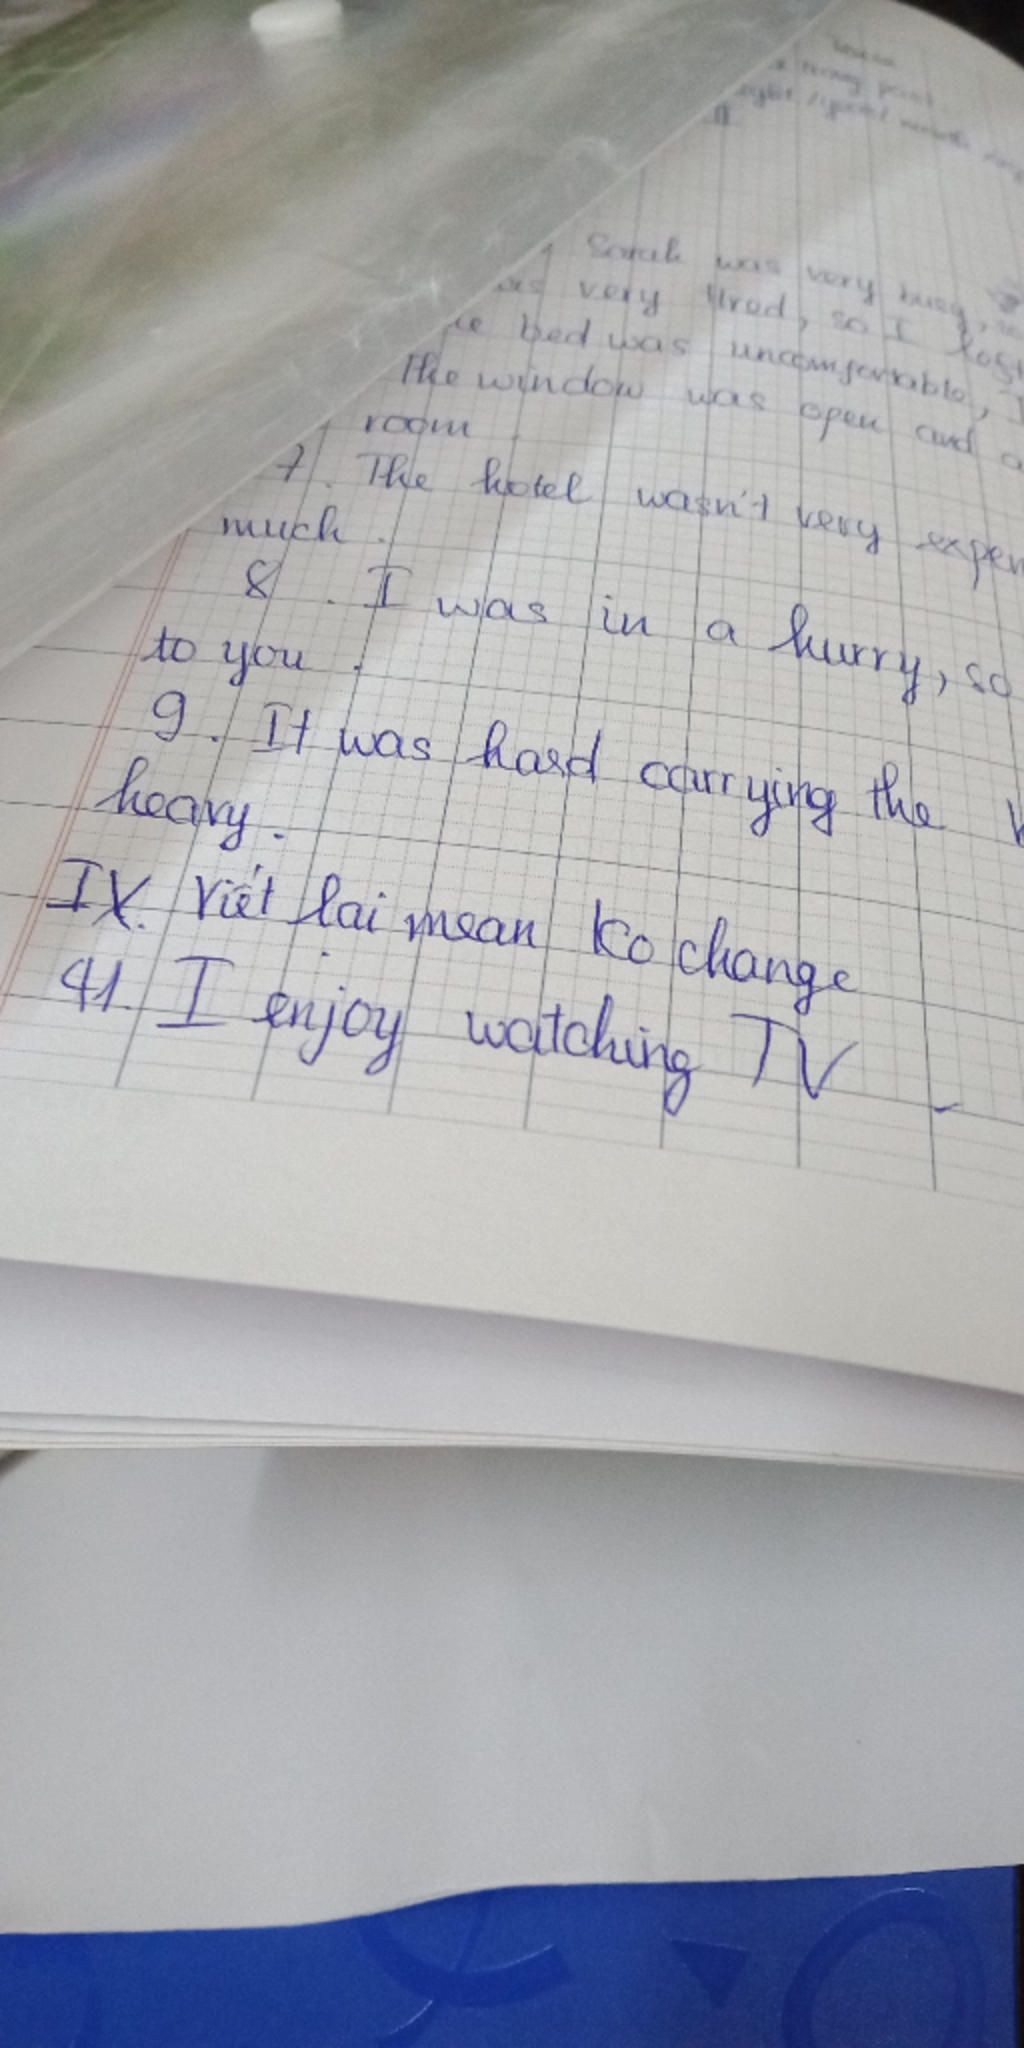 Sarah was very busy,
very tired, so I lost
bed was uncomfortable, I
The window was open and a
room
7. The hotel wasn't very expen
much.
8. I was in a hurry, so
to you.
9. It was hard carrying the
heavy.
IX. Viết lại mean ko change
41. I enjoy watching TV